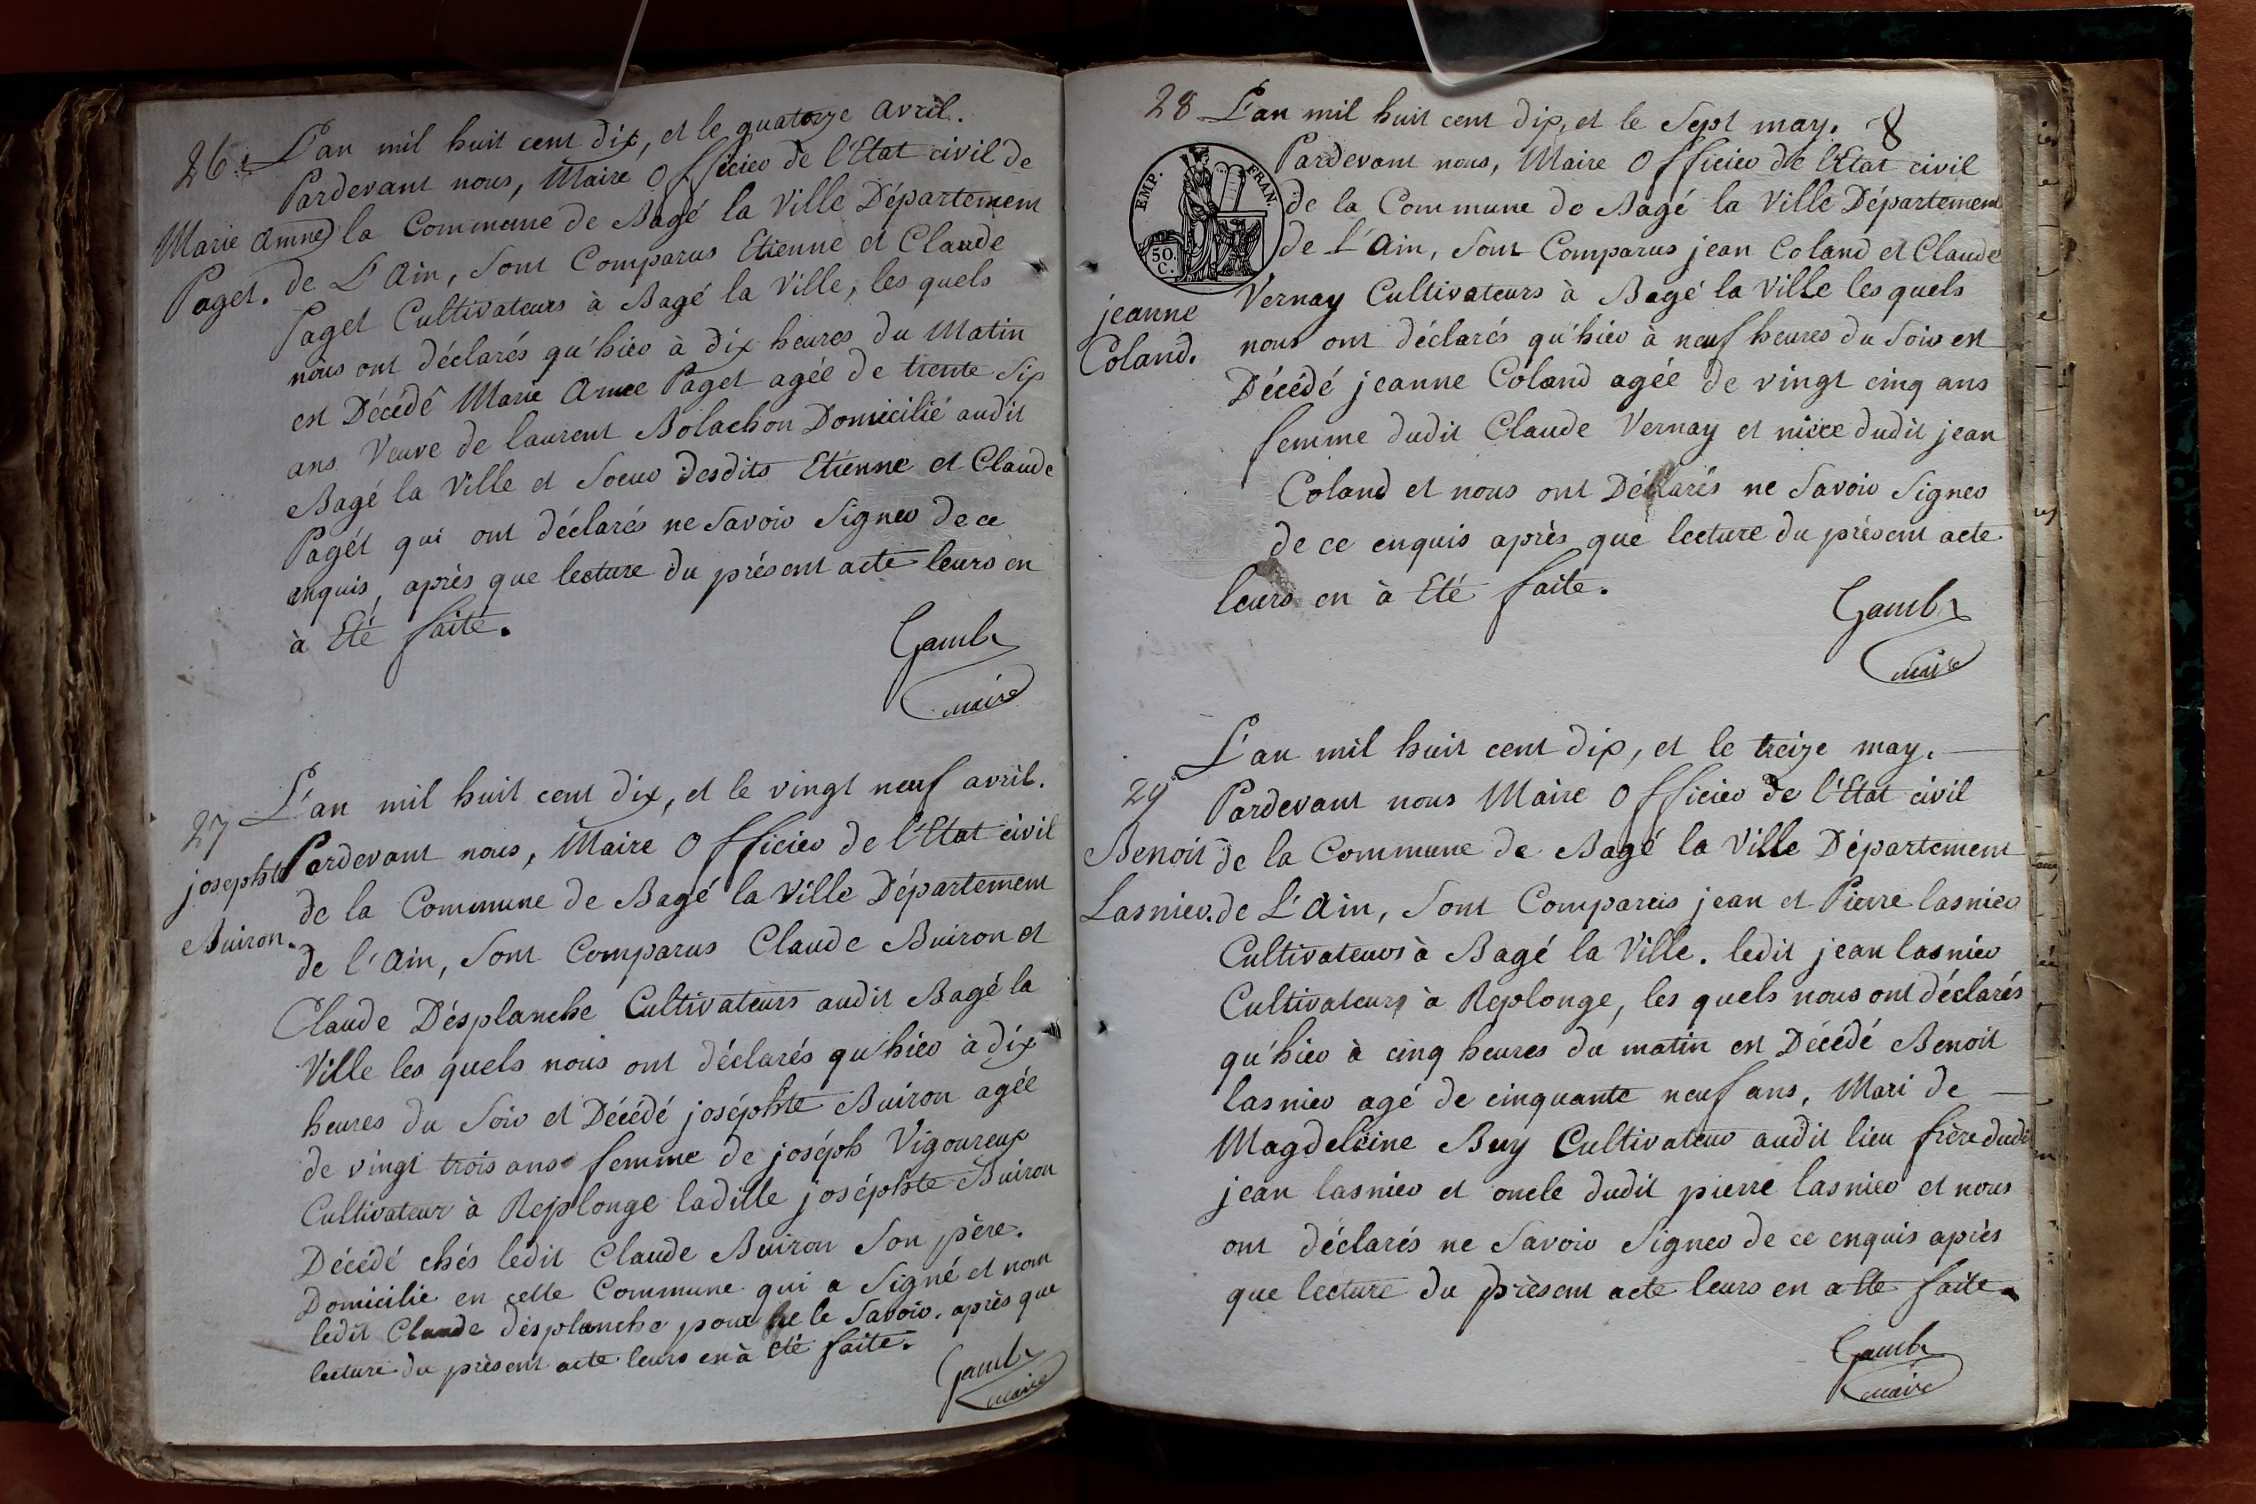 26. L'an mil huit cent dix, et le quatorze avril.
Pardevant nous, Maire Officier de l'Etat civil de
Marie Amne la Commune de Bagé la Ville Département
Paget. de L'Ain, sont Comparus Etienne et Claude
Paget Cultivateurs à Bagé la Ville, les quels
nous ont déclarés qu'hier à dix heures du Matin
est Décédé Marie Amee Paget agée de trente Six
ans Veuve de laurent Bolachon Domicilié audit
Bagé la Ville et Soeur desdits Etienne et Claude
Paget qui ont déclarés ne Savoir Signer de ce
enquis, après que lecture du présent acte leurs en
à Eté faite.
Gamb
maire
L'an mil huit cent dix, et le vingt neuf avril.
27
Pardevant nous, Maire Officier de l'Etat civil
josephte
de la Commune de Bagé la Ville Département
Buiron.
de l'Ain, Sont Comparus Claude Buiron et
Claude Désplanche Cultivateurs audit Bagé la
Ville les quels nous ont déclarés qu'hier à dix
heures du Soir et Décédé joséphte Buiron agée
de vingt trois ans femme de joséph Vigoureux
Cultivateur à Replonge ladille joséphte Buiron
Décédé chés ledit Claude Buiron Son père.
Domicilié en cette Commune qui a Signé et non
ledit Claude désplanche pour ne le Savoir. après que
lecture du présent acte leurs en à été faite.
Gamb
maire
28 L'an mil huit cent dix, et le Sept may. 8
Pardevant nous, Maire Officier de l'Etat civil
EMP. FRAN.
50. C.
de la Commune de Bagé la Ville Département
de L'Ain, Sont Comparus jean Coland et Claude
Vernay Cultivateurs à Bagé la Ville les quels
jeanne
Coland.
nous ont déclarés qu'hier à neuf heures du Soir est
Décédé jeanne Coland agée de vingt cinq ans
femme dudit Claude Vernay et nièce dudit jean
Coland et nous ont Déclarés ne Savoir Signer
de ce enquis après que lecture du présent acte
leurs en à Eté faite.
Gamb
maire
L'an mil huit cent dix, et le treize may.
29
Pardevant nous Maire Officier de l'Etat civil
Benoit de la Commune de Bagé la Ville Département
Lasnier. de L'Ain, Sont Comparus jean et Pierre lasnier
Cultivateurs à Bagé la Ville. ledit jean lasnier
Cultivateurs à Replonge, les quels nous ont déclarés
qu'hier à cinq heures du matin est Décédé Benoit
lasnier agé de cinquante neuf ans, Mari de
Magdeleine Buy Cultivateur audit lieu frère dudit
jean lasnier et oncle dudit pierre lasnier et nous
ont déclarés ne Savoir Signer de ce enquis après
que lecture du présent acte leurs en a Eté faite.
Gamb
maire